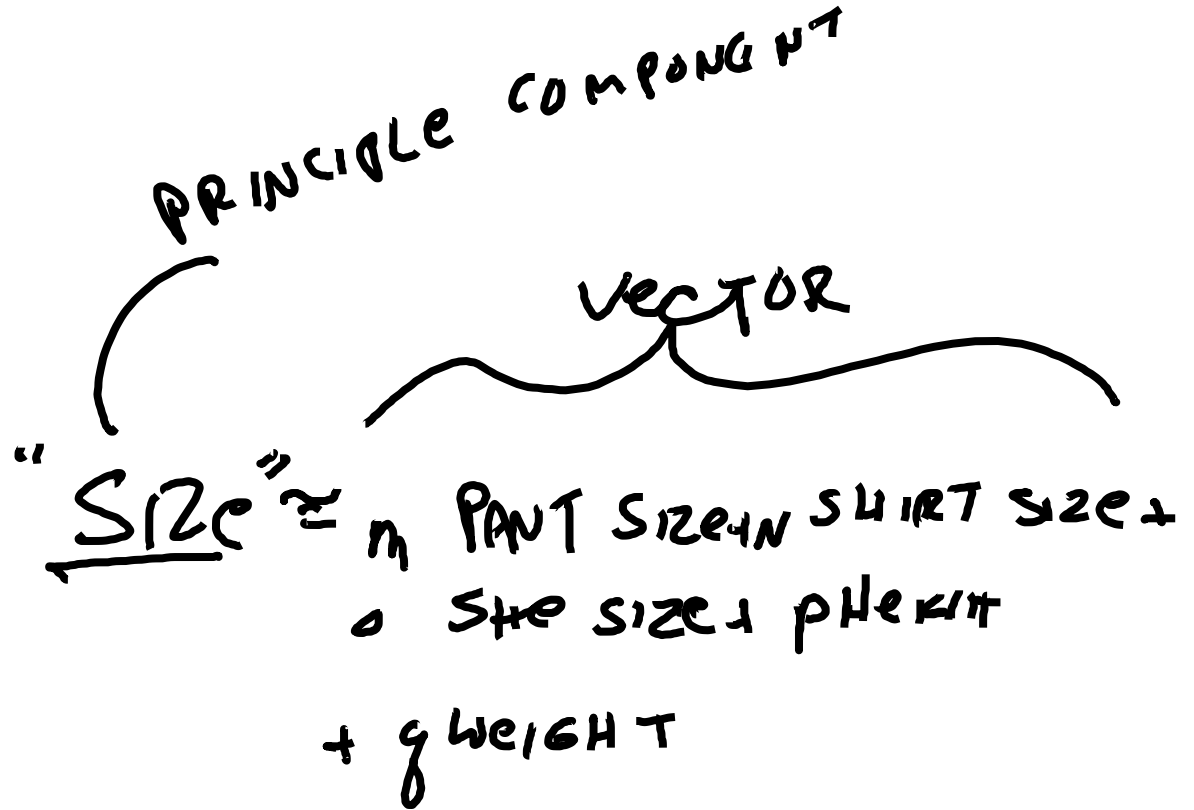 PRINCIPLE COMPONENT
VECTOR
"SIZE" ≅ m PANT SIZE + N SHIRT SIZE +
o SHE SIZE + p
+ q WEIGHT